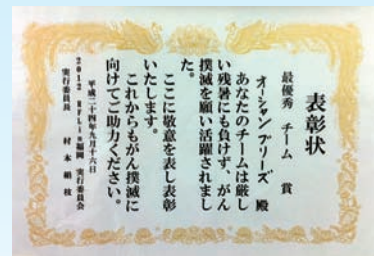 表彰状
最優秀 チーム 賞
オーシャンブリーズ 殿
あなたのチームは厳し
い残暑にも負けず、がん
撲滅を願い活躍されまし
た。
ここに敬意を表し表彰
いたします。
これからもがん撲滅に
向けてご助力ください。
平成二十四年九月十六日
2012 RFLin福岡 実行委員会
実行委員長 村本絹枝